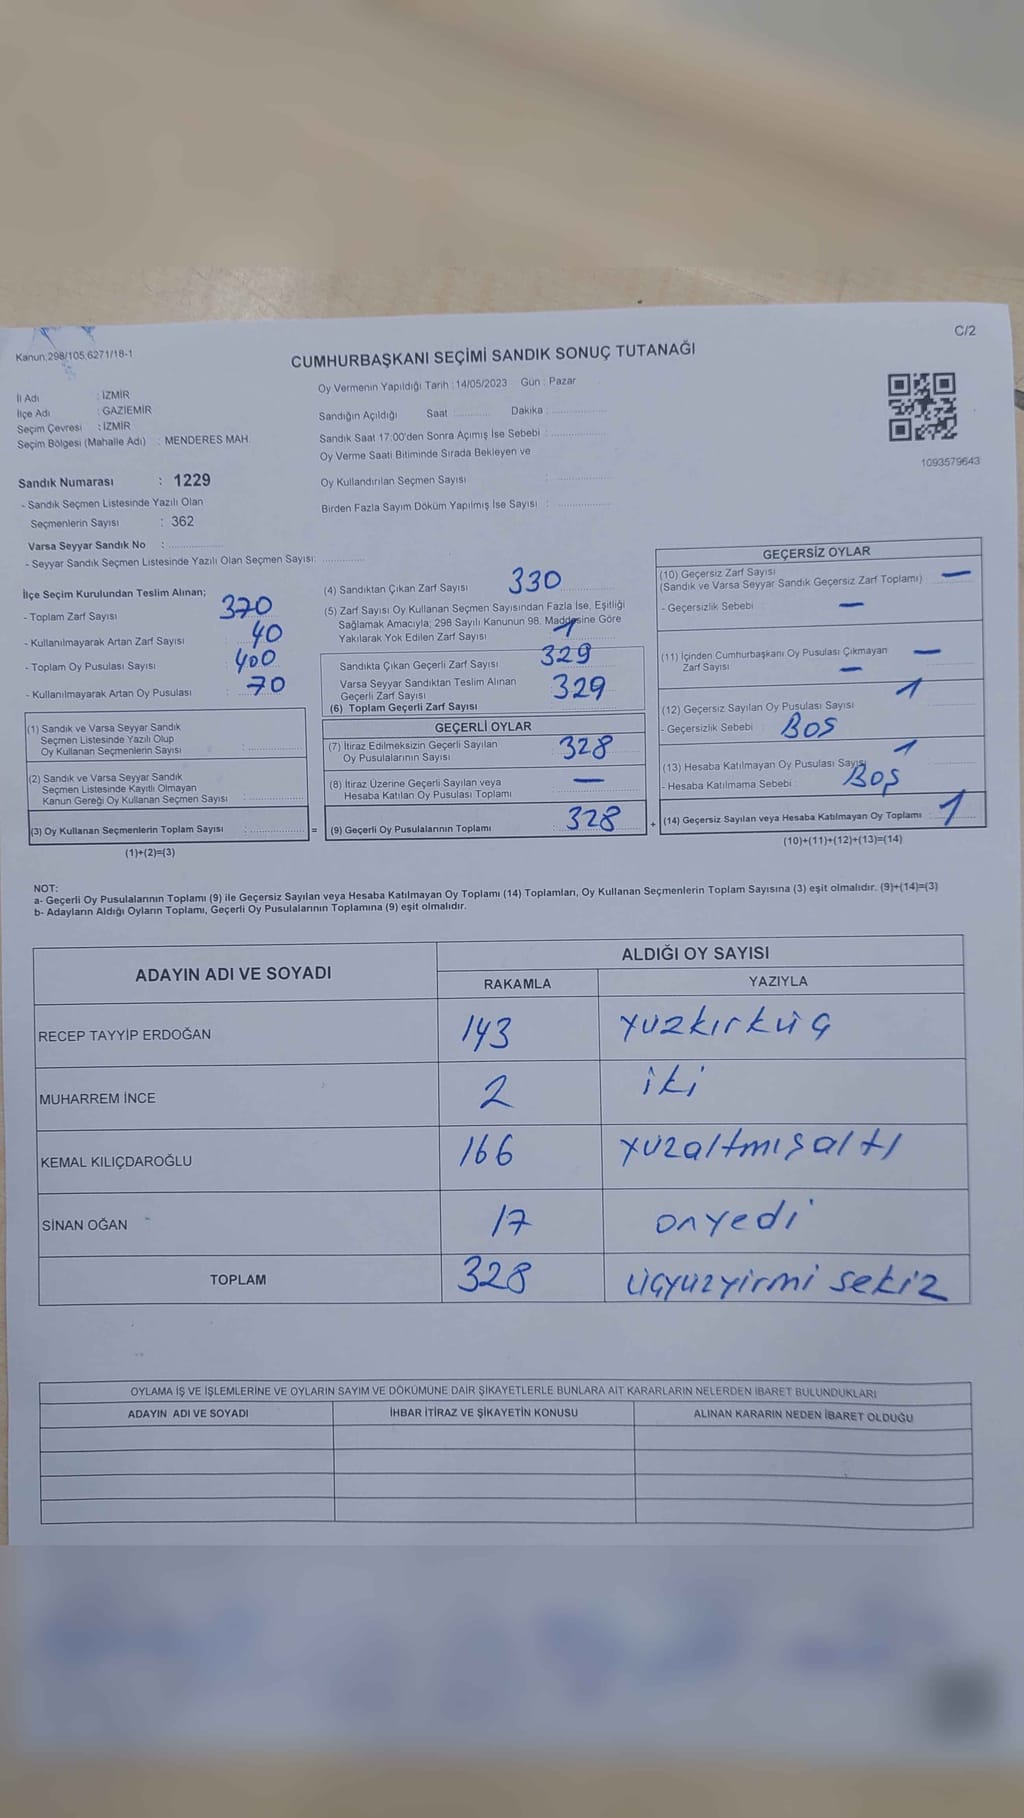 C/2
Kanun,298/105,6271/18-1
CUMHURBAŞKANI SEÇİMİ SANDIK SONUÇ TUTANAĞI
İl Adı : İZMİR
İlçe Adı : GAZİEMİR
Seçim Çevresi : İZMİR
Seçim Bölgesi (Mahalle Adı) : MENDERES MAH.
Oy Vermenin Yapıldığı Tarih : 14/05/2023 Gün : Pazar
Sandığın Açıldığı Saat Dakika :
Sandık Saat 17:00'den Sonra Açılmış İse Sebebi :
Oy Verme Saati Bitiminde Sırada Bekleyen ve
Oy Kullandırılan Seçmen Sayısı :
Birden Fazla Sayım Döküm Yapılmış İse Sayısı :
1093579643
Sandık Numarası : 1229
- Sandık Seçmen Listesinde Yazılı Olan
Seçmenlerin Sayısı : 362
Varsa Seyyar Sandık No :
- Seyyar Sandık Seçmen Listesinde Yazılı Olan Seçmen Sayısı:
İlçe Seçim Kurulundan Teslim Alınan;
- Toplam Zarf Sayısı : 370
- Kullanılmayarak Artan Zarf Sayısı : 40
- Toplam Oy Pusulası Sayısı : 400
- Kullanılmayarak Artan Oy Pusulası : 70
(1) Sandık ve Varsa Seyyar Sandık
Seçmen Listesinde Yazılı Olup
Oy Kullanan Seçmenlerin Sayısı :
(2) Sandık ve Varsa Seyyar Sandık
Seçmen Listesinde Kayıtlı Olmayan
Kanun Gereği Oy Kullanan Seçmen Sayısı :
(3) Oy Kullanan Seçmenlerin Toplam Sayısı :
(1)+(2)=(3)
=
(4) Sandıktan Çıkan Zarf Sayısı : 330
(5) Zarf Sayısı Oy Kullanan Seçmen Sayısından Fazla İse, Eşitliği
Sağlamak Amacıyla; 298 Sayılı Kanunun 98. Maddesine Göre
Yakılarak Yok Edilen Zarf Sayısı : 1
Sandıkta Çıkan Geçerli Zarf Sayısı : 329
Varsa Seyyar Sandıktan Teslim Alınan
Geçerli Zarf Sayısı
(6) Toplam Geçerli Zarf Sayısı : 329
GEÇERLİ OYLAR
(7) İtiraz Edilmeksizin Geçerli Sayılan
Oy Pusulalarının Sayısı : 328
(8) İtiraz Üzerine Geçerli Sayılan veya
Hesaba Katılan Oy Pusulası Toplamı : —
(9) Geçerli Oy Pusulalarının Toplamı : 328
+
GEÇERSİZ OYLAR
(10) Geçersiz Zarf Sayısı
(Sandık ve Varsa Seyyar Sandık Geçersiz Zarf Toplamı) : —
- Geçersizlik Sebebi : —
(11) İçinden Cumhurbaşkanı Oy Pusulası Çıkmayan
Zarf Sayısı : —
—
(12) Geçersiz Sayılan Oy Pusulası Sayısı : 1
- Geçersizlik Sebebi : Boş
(13) Hesaba Katılmayan Oy Pusulası Sayısı : 1
- Hesaba Katılmama Sebebi : Boş
(14) Geçersiz Sayılan veya Hesaba Katılmayan Oy Toplamı : 1
(10)+(11)+(12)+(13)=(14)
NOT:
a- Geçerli Oy Pusulalarının Toplamı (9) ile Geçersiz Sayılan veya Hesaba Katılmayan Oy Toplamı (14) Toplamları, Oy Kullanan Seçmenlerin Toplam Sayısına (3) eşit olmalıdır. (9)+(14)=(3)
b- Adayların Aldığı Oyların Toplamı, Geçerli Oy Pusulalarının Toplamına (9) eşit olmalıdır.
ADAYIN ADI VE SOYADI ALDIĞI OY SAYISI
RAKAMLA YAZIYLA
RECEP TAYYİP ERDOĞAN 143 yüzkırküç
MUHARREM İNCE 2 iki
KEMAL KILIÇDAROĞLU 166 yüzaltmışaltı
SİNAN OĞAN 17 onyedi
TOPLAM 328 üçyüzyirmi sekiz
OYLAMA İŞ VE İŞLEMLERİNE VE OYLARIN SAYIM VE DÖKÜMÜNE DAİR ŞİKAYETLERLE BUNLARA AİT KARARLARIN NELERDEN İBARET BULUNDUKLARI
ADAYIN ADI VE SOYADI İHBAR İTİRAZ VE ŞİKAYETİN KONUSU ALINAN KARARIN NEDEN İBARET OLDUĞU